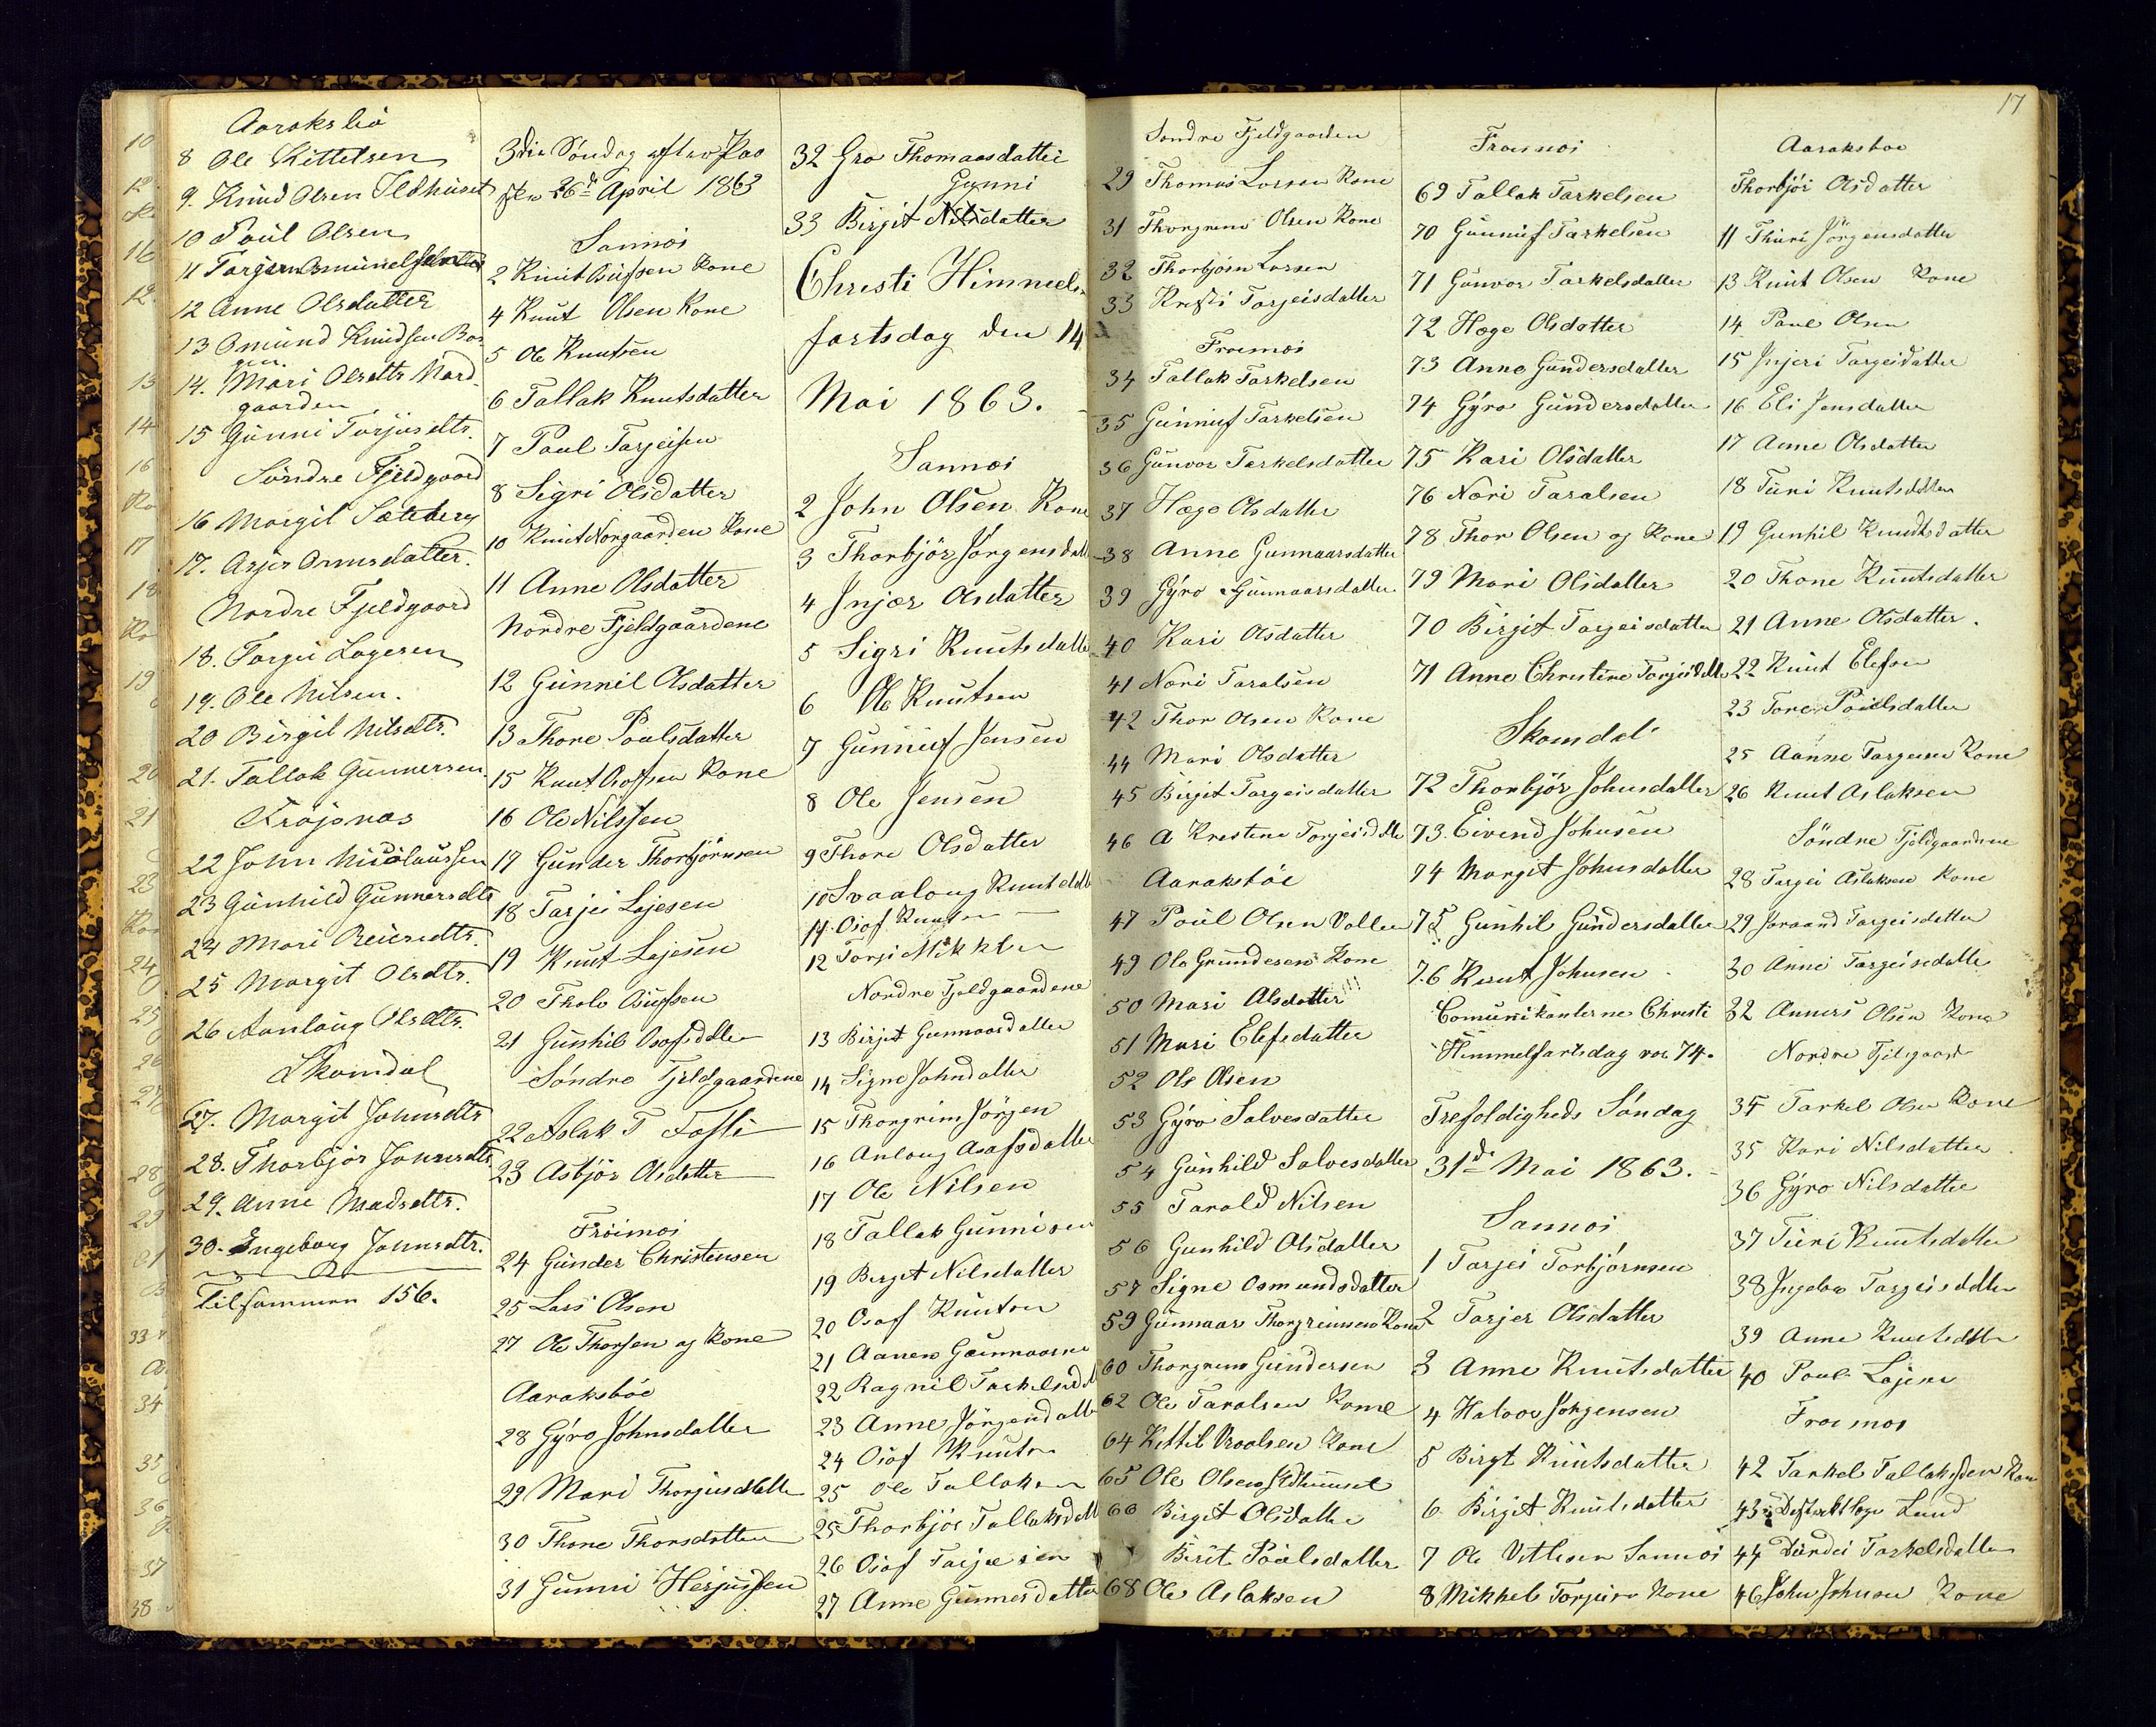 Aaraksbö
8 Ole Kittelsen
9. Knud Olsen Ildhuset
10 Paul Olsen
11 Torgern
12 Anne Olsdatter
13 Omund Knudsen
14. Mari Olsdttr Nord
gaarden
15 Gunni Torjusdttr.
Söndre Fjeldgaard
16 Margit Sateberg
17. Asjer Omusdatter.
Nordre Fjeldgaard
18. Torgei Logesen
19. Ole Nilsen.
20 Birgit Nilsdtr.
21. Tallak Gunnersen.
Fröjsnæs
22 John Nicolaussen
23 Gunhild Gunnersdtr
24 Mari Reiersdtr.
25 Margit Olsdtr.
26 Aanlaug Olsdtr.
Skomdal
27. Margit Johnsdtr
28. Thorbjör Johnsdtr
29. Anne Madsdtr.
30. Ingeborg Johnsdtr.
Tilsammen 156.
3die Söndag efter Paa
ske 26de April 1863
Sannæs
2 Knut Osufsen Kone
4 Knut Olsen Kone
5 Ole Knutsen
6 Tallak Knutsdatter
7 Paul Tarjeisen
8 Sigri Olsdatter
10 Knut Norgaarden Kone
11 Anne Olsdatter
Nordre Fjeldgaardene
12 Gunnil Olsdatter
13 Thore Poulsdatter
15 Knut Osofsen Kone
16 Ole Nilssen
17 Gunder Thorbjörnsen
18 Tarjei Lajesen
19 Knut Lajesen
20 Thole Osufsen
21 Gunhil Osofsdtter
Söndre Fjeldgaardene
22 Aslak T Fossli
23 Asbjör Olsdatter
Fröimos
24 Gunder Christensen
25 Lars Olsen
27 Ole Thorsen og Kone
Aaraksböe
28 Gyro Johnsdatter
29 Mari Thorjusdatter
30 Thone Thorsdatter
31 Gunni Herjussen
32 Gro Thomaasdatter
Gunni
33 Birgit Nilsdatter
Christi Himmel-
fartsdag den 14
Mai 1863.
Sannæs
2 John Olsen Kone
3 Thorbjör Jörgensdatt
4 Injær Olsdatter
5 Sigri Knutsdatte
6 Ole Knutsen
7 Gunnuf Jensen
8 Ole Jensen
9 Thore Olsdatter
10 Svaaloug Knutsdatt
11 Osof Knutsen
12 Torje Mikkl
Nordre Fjeldgaardene
13 Birjet Gunnaasdatter
14 Signe Johndatter
15 Thorgrim Jörgen
16 Anloug Osafsdatter
17 Ole Nilsen
18 Tallak Gunnisen
19 Berget Nilsdatter
20 Osof Knuton
21 Aanen Gunnaarsen
22 Ragnil Tarkelsdt
23 Anne Jörgendatt
24 Osof Knuts
25 Ole Tallaksen
25 Thorbjör Tallaksdatt
26 Osof Tarjeisen
27 Anne Gunnersdatter
17
Sondre Fjeldgaarden
29 Thomas Larsen Kone
31 Thorgrem Olsen Kone
32 Thorbjörn Larsen
33 Kresti Tarjeisdatter
Froemos
34 Tallak Tarkelsen
35 Gunnuf Tarkelsen
36 Gunvor Tarkelsdatter
37 Hæge Olsdatter
38 Anne Gunnaarsdatter
39 Gyro Gunnaarsdatter
40 Kari Olsdatter
41 Næri Taralsen
42 Thor Olsen Kone
44 Mari Olsdatter
45 Birjit Targeisdatter
46 A Krestine Torjeisdatt
Aaraksböe
47 Poul Olsen Vollen
49 Ole Grundesen Kone
50 Mari Olsdatter
51 Mari Elefsdatter
52 Ole Olsen
53 Gyro Salvesdatter
54 Gunhild Salvesdatter
55 Tarald Nilsen
56 Gunhild Olsdatter
57 Signe Osmundsdatter
59 Gunnaar Thorgrimsen Kone
60 Thorgrim Gundersen
62 Ole Taralsen Kone
64 Kettil Vraalsen Kone
65 Ole Olsen Ildhuuset
66 Birget Olsdatter
Berit Paalsdatter
68 Ole Aslaksen
Froemos
69 Tallak Tarkelsen
70 Gunnuf Tarkelsen
71 Gunvor Tarkelsdatter
72 Hæge Olsdatter
73 Anne Gundersdatter
74 Gyro Gundersdatter
75 Kari Olsdatter
76 Næri Taralsen
78 Thor Olsen og Kone
79 Mari Olsdatter
70 Birgit Tarjeisdatter
71 Anne Christine Torjeisdtt
Skomdal
72 Thorbjör Johnsdatter
73. Eivend Johnsen
74 Margit Johnsdatter
75 Gunhil Gundersdatter
76 Knut Johnsen
Comunikanterne Christi
Himmelfartsdag var 74.
Trefoldigheds Söndag
31de Mai 1863.
Sannæs
1 Tarjei Torbjörnsen
2 Tarjer Olsdatter
3 Anne Knutsdatter
4 Halvor Jörgensen
5 Birgt Knutsdatter
6 Birjit Knutsdatter
7 Ole Vetlesen Sannæs
8 Mikkel Torjuse Kone
Aaraksboe
Thorbjör Olsdatter
11 Thuri Jörgensdatter
13 Knut Olsen Kone
14 Paul Olsen
15 Injeri Targeisdatter
16 Eli Jensdatter
17 Anne Olsdatter
18 Turi Knutsdatter
19 Gunhil Knudtsdatter
20 Thone Knutsdatter
21 Anne Olsdatter.
22 Knut Elefsen
23 Tore Poulsdatter
25 Aanne Targeisen Kone
26 Knut Aslaksen
Söndre Fjeldgaardene
28 Targei Aslaksen Kone
29 Joraand Targeisdatter
30 Anne Targeisdatte
32 Anners Olsen Kone
Nordre Fjelsgaard
34 Tarkel Olsen Kone
35 Kari Nilsdatter
36 Gyro Nilsdatter
37 Turi Knutsdatter
38 Ingebor Targeisdatter
39 Anne Knutsdatter
40 Paul Lajesen
Froemos
42 Tarkel Tallaksen Kone
43 Lund
44 Dardei Tarkelsdatter
46 John Johnsen Kone